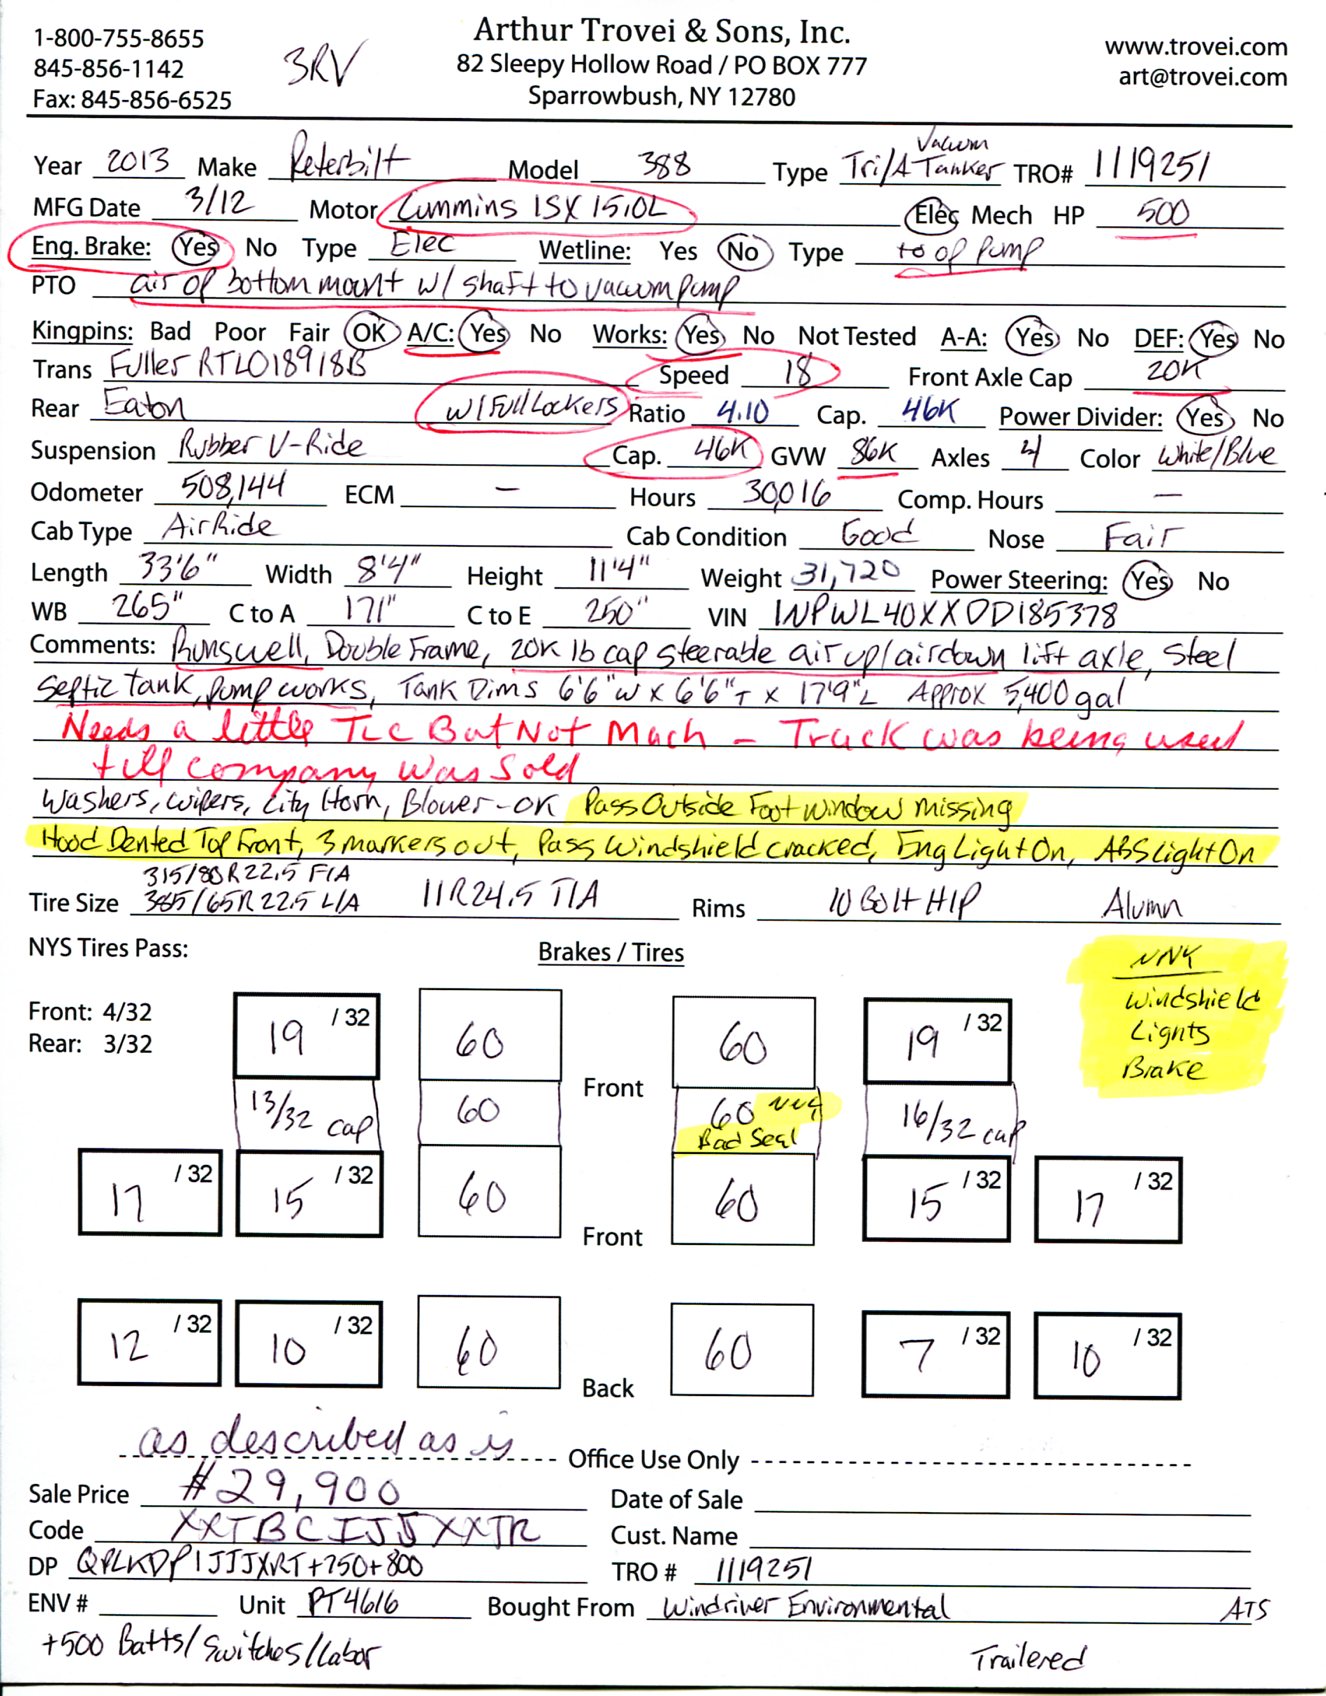 1-800-755-8655
845-856-1142
Fax: 845-856-6525
3RV
Arthur Trovei & Sons, Inc.
82 Sleepy Hollow Road / PO BOX 777
Sparrowbush, NY 12780
www.trovei.com
art@trovei.com
Year 2013 Make Peterbilt Model 388 Type Tri/A Vacuum Tanker TRO# 1119251
MFG Date 3/12 Motor Cummins ISX 15.0L Elec Mech HP 500
Eng. Brake: Yes No Type Elec Wetline: Yes No Type to op pump
PTO air op bottom mount w/ shaft to vacuum pump
Kingpins: Bad Poor Fair OK A/C: Yes No Works: Yes No Not Tested A-A: Yes No DEF: Yes No
Trans Fuller RTLO18918B Speed 18 Front Axle Cap 20K
Rear Eaton w/ Full Lockers Ratio 4.10 Cap. 46K Power Divider: Yes No
Suspension Rubber V-Ride Cap. 46K GVW 86K Axles 4 Color White/Blue
Odometer 508,144 ECM — Hours 30,016 Comp. Hours —
Cab Type Air Ride Cab Condition Good Nose Fair
Length 33'6" Width 8'4" Height 11'4" Weight 31,720 Power Steering: Yes No
WB 265" C to A 171" C to E 250" VIN 1NPWL40XXDD185378
Comments: Runswell, Double Frame, 20K lb cap steerable air up/air down lift axle, Steel
septic tank, pump works, Tank Dims 6'6"W x 6'6"T x 17'9"L Approx 5,400 gal
Needs a little TLC But Not Much - Truck was being used
till company was sold
Washers, wipers, City Horn, Blower-OK Pass Outside Foot window missing
Hood Dented Top Front, 3 markers out, Pass Windshield cracked, Eng Light On, ABS Light On
315/80R22.5 F/A
Tire Size 385/65R22.5 L/A 11R24.5 T/A Rims 10 Bolt H/P Alumn
NYS Tires Pass: Brakes / Tires
NNY
Windshield
Lights
Brake
Front: 4/32
Rear: 3/32
19 /32 60 60 19 /32
Front
13/32 cap 60 60 NNY 16/32 cap
Bad Seal
17 /32 15 /32 60 60 15 /32 17 /32
Front
12 /32 10 /32 60 60 7 /32 10 /32
Back
as described as is Office Use Only
Sale Price $29,900 Date of Sale
Code XXTBCIJJXXTR Cust. Name
DP QPLKDPIJJJXRT+750+800 TRO # 1119251
ENV # Unit PT4616 Bought From Windriver Environmental ATS
+500 Batts/Switches/Labor Trailered